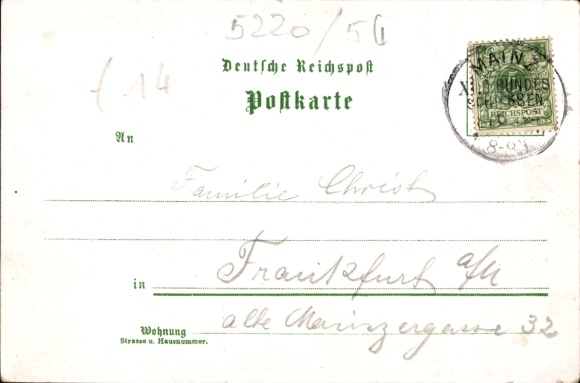 5220/5
£ 14
Deutsche Reichspost
Postkarte
MAINZ
BUNDES
SCHIESSEN
REICHSPOST
8-9N
An
Familie Christ
Frankfurt a/M
in
alte Mainzergasse 32
Wohnung
Strasse u. Hausnummer.